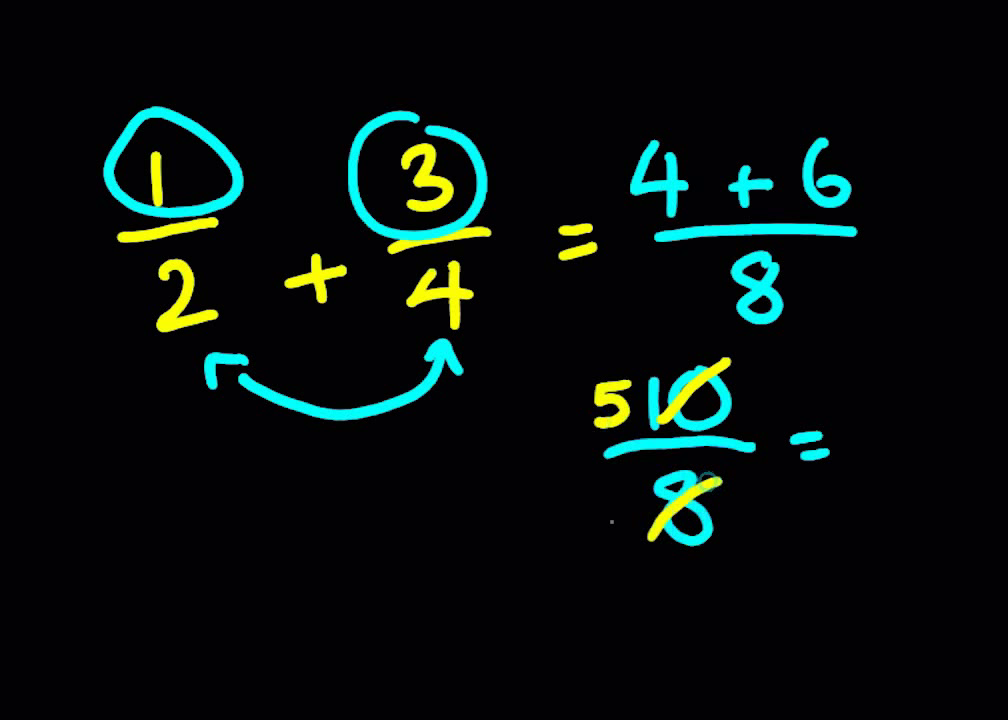 1/2 + 3/4 = 4 + 6/8
5 10/8 =